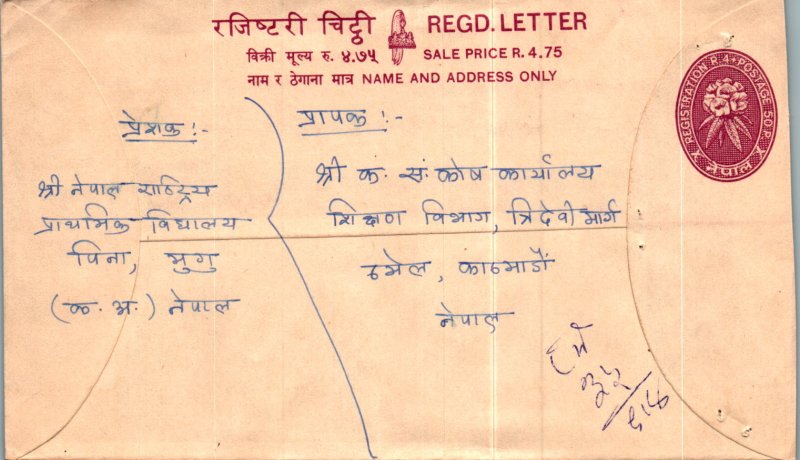 रजिष्टरी चिट्ठी REGD. LETTER
विक्री मूल्य रु. ४.७५ SALE PRICE R. 4.75
नाम र ठेगाना मात्र NAME AND ADDRESS ONLY
REGISTRATION R.4+POSTAGE 50P.
नेपाल
प्रेषक :-
श्री नेपाल राष्ट्रिय
प्राथमिक विद्यालय
पिना, मुगु
(क. अ.) नेपाल
प्रापक :-
श्री क. सं. कोष कार्यालय
शिक्षण विभाग, त्रिदेवी मार्ग
ठमेल, काठमाडौं
नेपाल